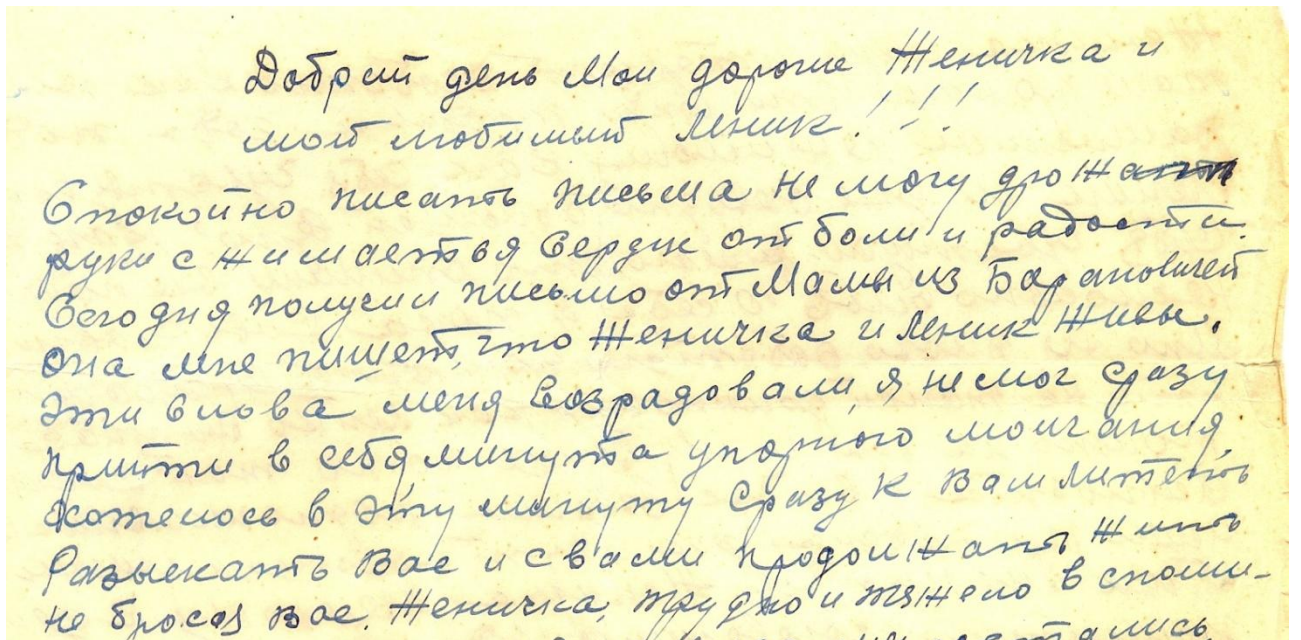 Добрий день Мои дорогие Женичка и
мой любимый Леник!!!
Спокойно писать письма не могу дрожать
руки сжимаеться сердце от боли и радости.
Сегодня получил письмо от Мамы из Барановичей
она мне пишет, что Женичка и Леник живы.
Эти слова меня возрадовали, я не мог сразу
прийти в себя минута упорного молчания
хотелось в эту минуту сразу к Вам лететь
Разыскать Вас и с вами продолжать жить
не бросая вас. Женичка, трудно и тяжело вспоми-